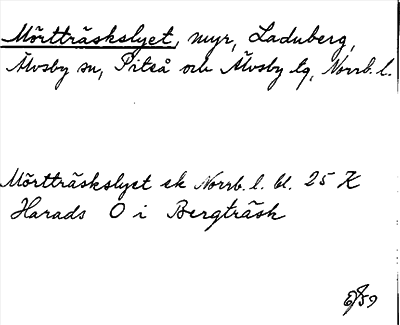 Mörtträskslyet, myr, Laduberg,
Älvsby sn, Piteå och Älvsby tg, Norrb. l.
Mörtträskslyet ek Norrb. l. bl. 25 K
Harads O i Bergträsk